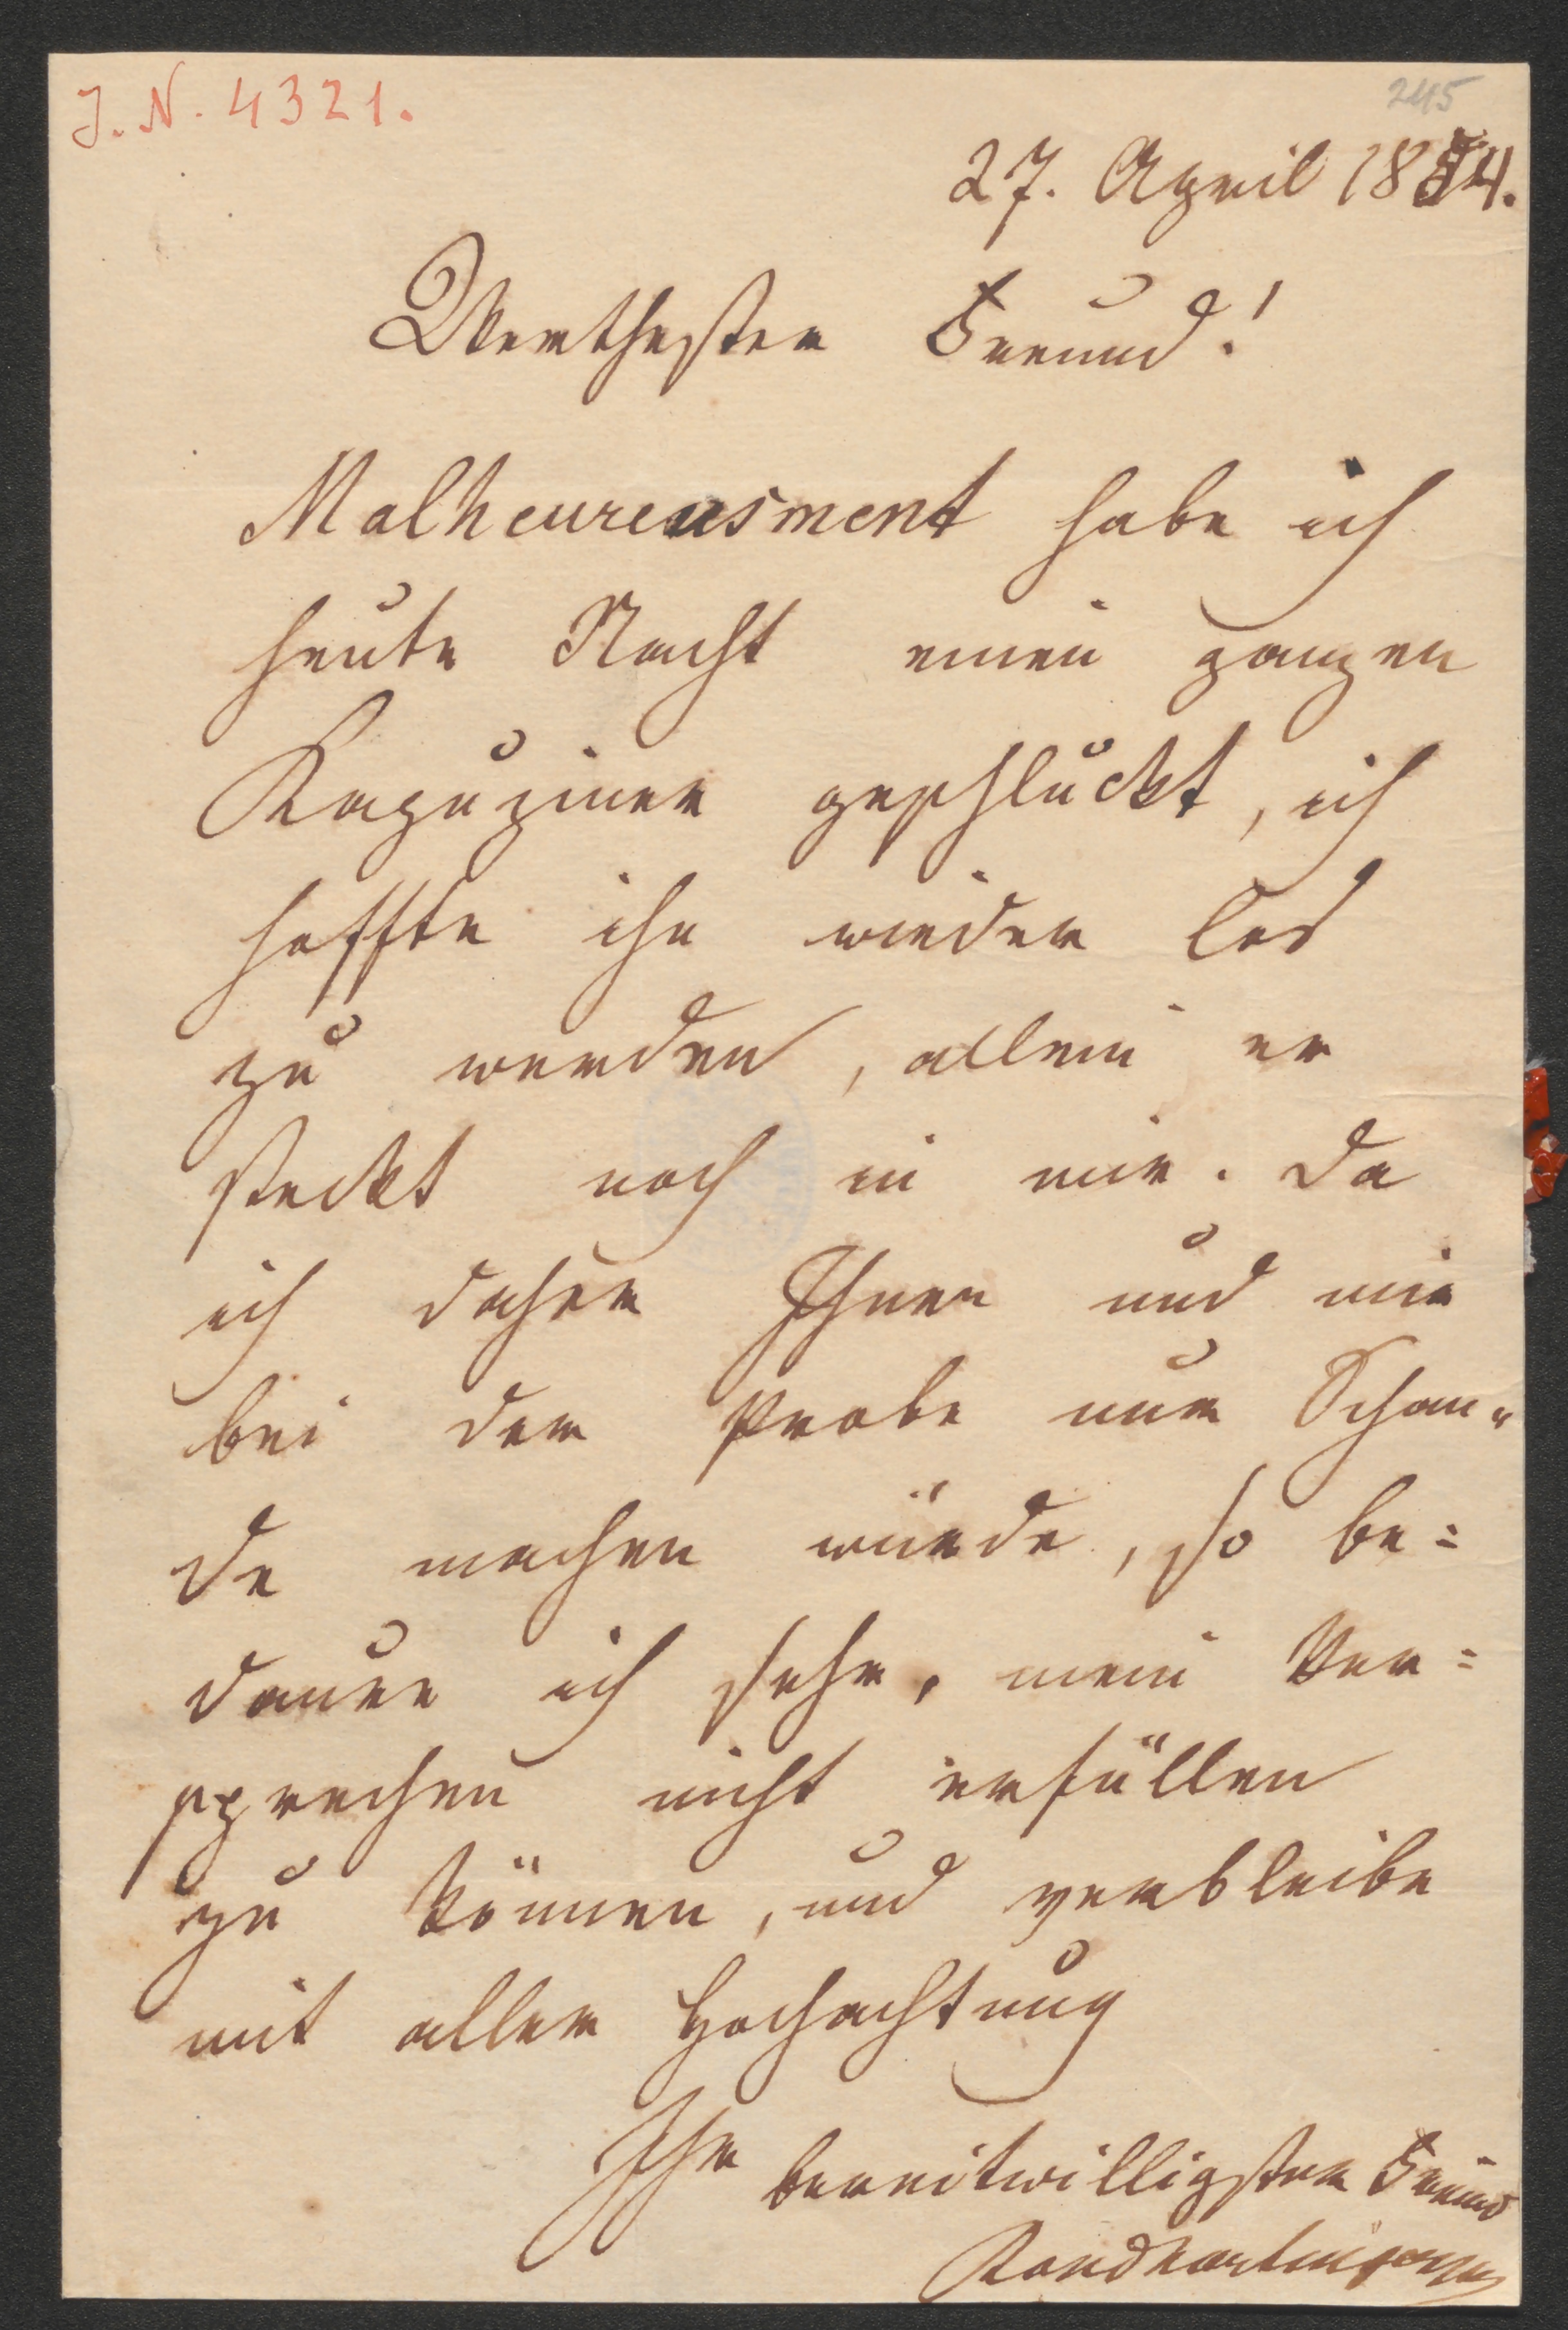 J. N. 4321.
245
27. April 1854.
Werthester Freund!
Malheureusment habe ich
heute Nacht einen ganzen
Kapuziner geschluckt, ich
hoffte ihn wieder los
zu werden, allein er
steckt noch in mir. Da
ich daher Ihnen und mir
bei der Probe nur Schan=
de machen würde, so be=
daure ich sehr, mein Ver=
sprechen nicht erfüllen
zu können, und verbleibe
mit aller Hochachtung
Ihr bereitwilligster Freund
Randhartinger